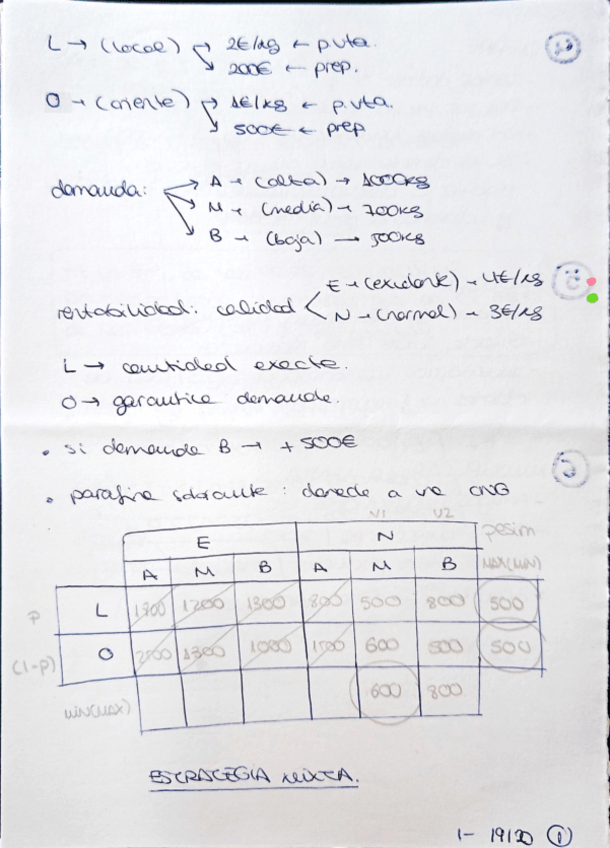 L → (local) → 2€/kg ← p.vta.
→ 200€ ← prep.
O → (oriente) → 1€/kg ← p.vta.
→ 500€ ← prep
demanda: → A → (alta) → 1000kg
→ M → (media) → 700kg
→ B → (baja) → 500kg
rentabilidad: calidad < E → (excelente) → 4€/kg
N → (normal) → 3€/kg
L → cantidad exacta.
O → garantiza demanda.
• si demanda B → + 500€
• parafina sobrante: donada a una ONG
V1 V2
E N pesim
A M B A M B MAX(MIN)
P L 1800 1200 1300 800 500 800 500
(1-P) O 2500 1300 1000 1500 600 500 500
MIN(MAX) 600 800
ESTRATEGIA MIXTA.
1- 19/20 ①